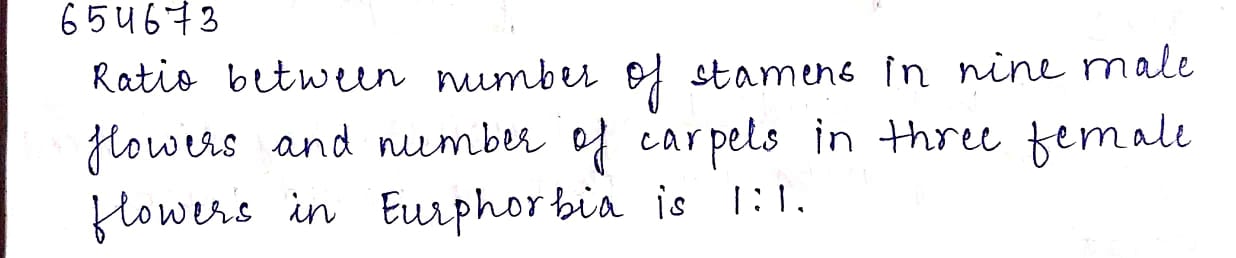 654673
Ratio between number of stamens in nine male
flowers and number of carpels in three female
flowers in Eurphorbia is 1:1.